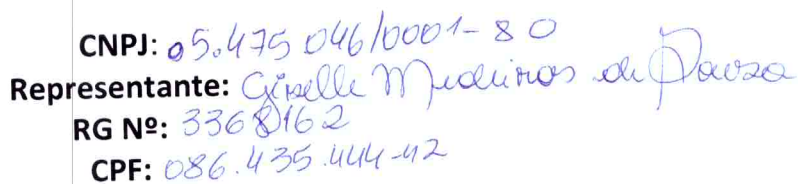 CNPJ: 05.475.046/0001-80
Representante: Giselle Medeiros de Souza
RG Nº: 3368162
CPF: 086.435.444-42